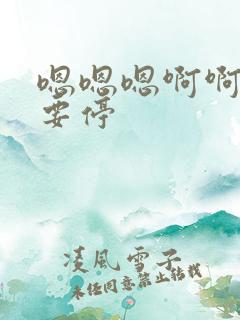 嗯嗯嗯啊啊
要停
凌风雪子
未经同意禁止转载